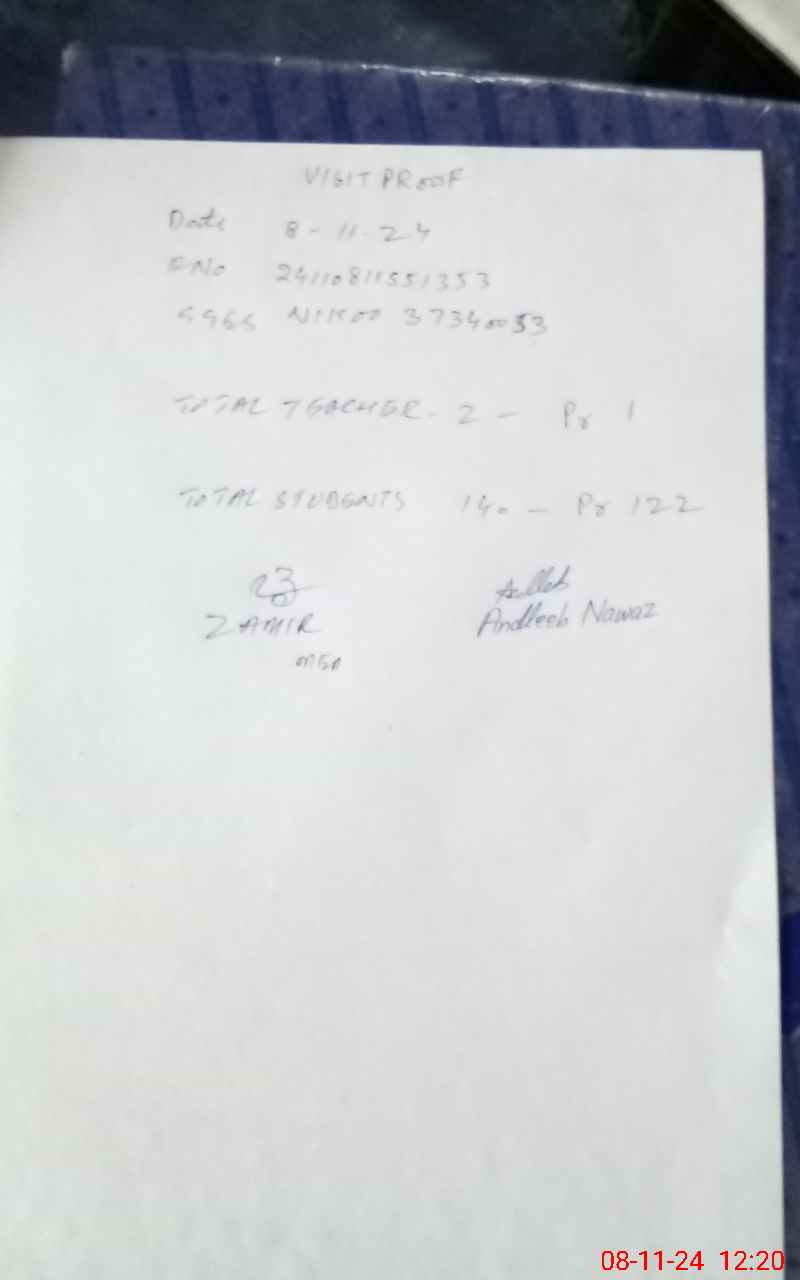 VISIT PROOF
Date 8-11-24
F No 24110811551353
GGES NIKOO 37340053
TOTAL TEACHER - 2 - Pr 1
TOTAL STUDENTS 140 - Pr 122
ZAMIR
Andleeb Nawaz
MEA
08-11-24 12:20